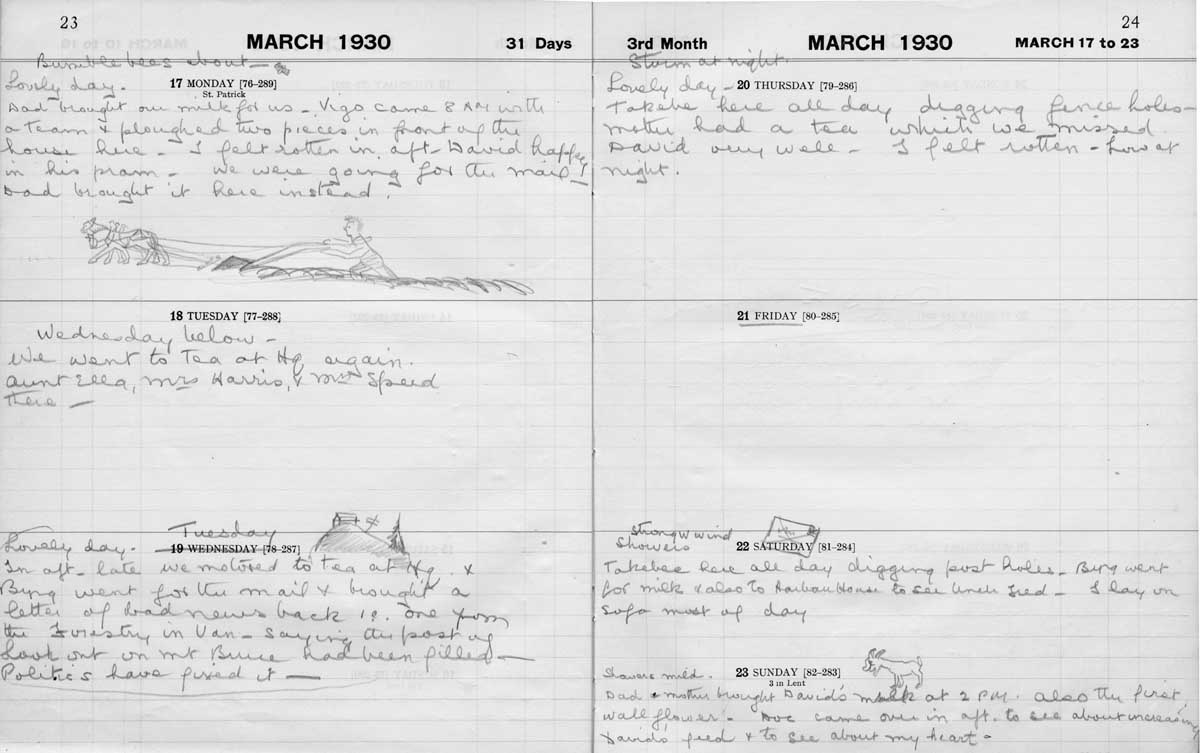 23
MARCH 1930
31 Days
Bumble bees about —
Lovely day -
17 MONDAY [76-289]
St. Patrick
Dad brought our milk for us - Vigo came 8 AM with
a team & ploughed two pieces in front of the
house here - I felt rotten in aft - David happy
in his pram - We were going for the mail &
Dad brought it here instead.
18 TUESDAY [77-288]
Wednesday below -
We went to Tea at Hq again.
Aunt Ella, Mrs Harris, & Mrs Speed
there —
Tuesday
Lovely day -
19 WEDNESDAY [78-287]
In aft - late we motored to tea at Hq. &
Bung went for the mail & brought a
letter of bad news back i.e. one from
the Forestry in Van - saying the post of
Look out on Mt Bruce had been filled —
Politics have fixed it —
24
3rd Month
MARCH 1930
MARCH 17 to 23
Storm at night.
Lovely day -
20 THURSDAY [79-286]
Takebe here all day digging fence holes -
Mother had a tea which we missed.
David very well - I felt rotten - Low at
night.
21 FRIDAY [80-285]
Strong W wind
Showers
22 SATURDAY [81-284]
Takebe here all day digging post holes - Bung went
for milk & also to Harbour House to see Uncle Fred - I lay on
sofa most of day
Showers mild.
23 SUNDAY [82-283]
3 in Lent
Dad & Mother brought David's milk at 2 PM. also the first
wall flower - Doc came over in aft. to see about increasing
David's feed & to see about my heart -